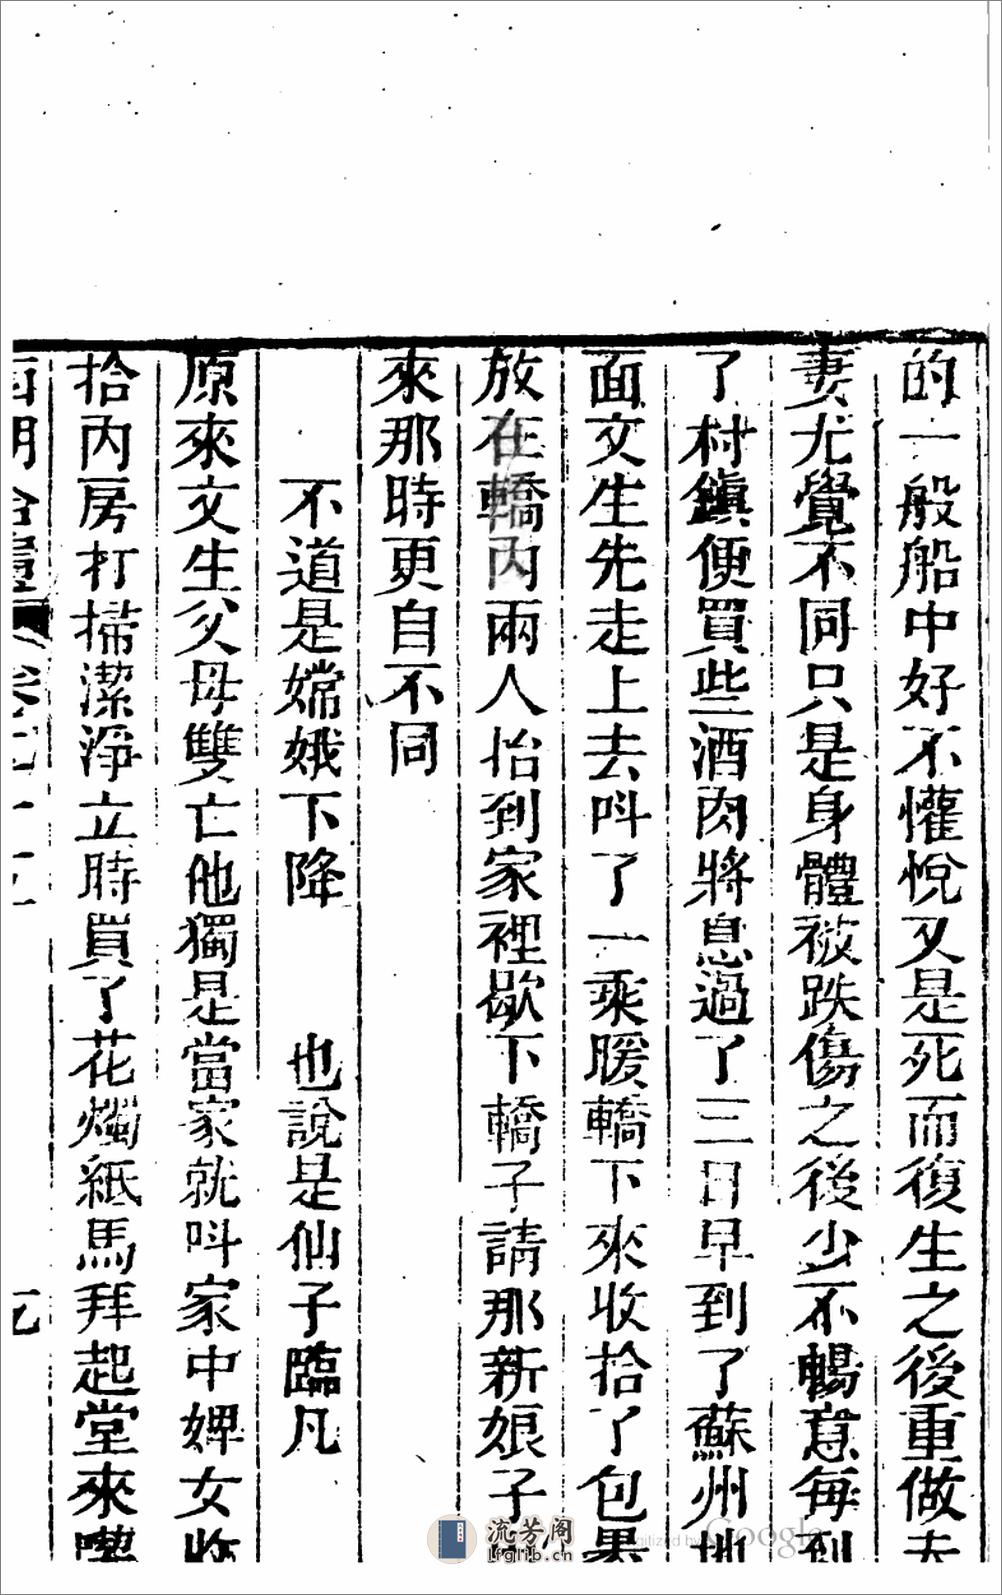 的一般船中好不懽悅又是死而復生之後重做夫
妻尤覺不同只是身體被跌傷之後少不暢意每到
了村鎮便買些酒肉將息過了三日早到了蘇州地
面文生先走上去呌了一乘暖轎下來收拾了包裹
放在轎內兩人抬到家裡歇下轎子請那新娘子
來那時更自不同
不道是嫦娥下降　也說是仙子臨凡
原來文生父母雙亡他獨是當家就呌家中婢女收
拾內房打掃潔淨立時買了花燭紙馬拜起堂來
卷
流芳阁
lfglib.cn
Digitized by Google